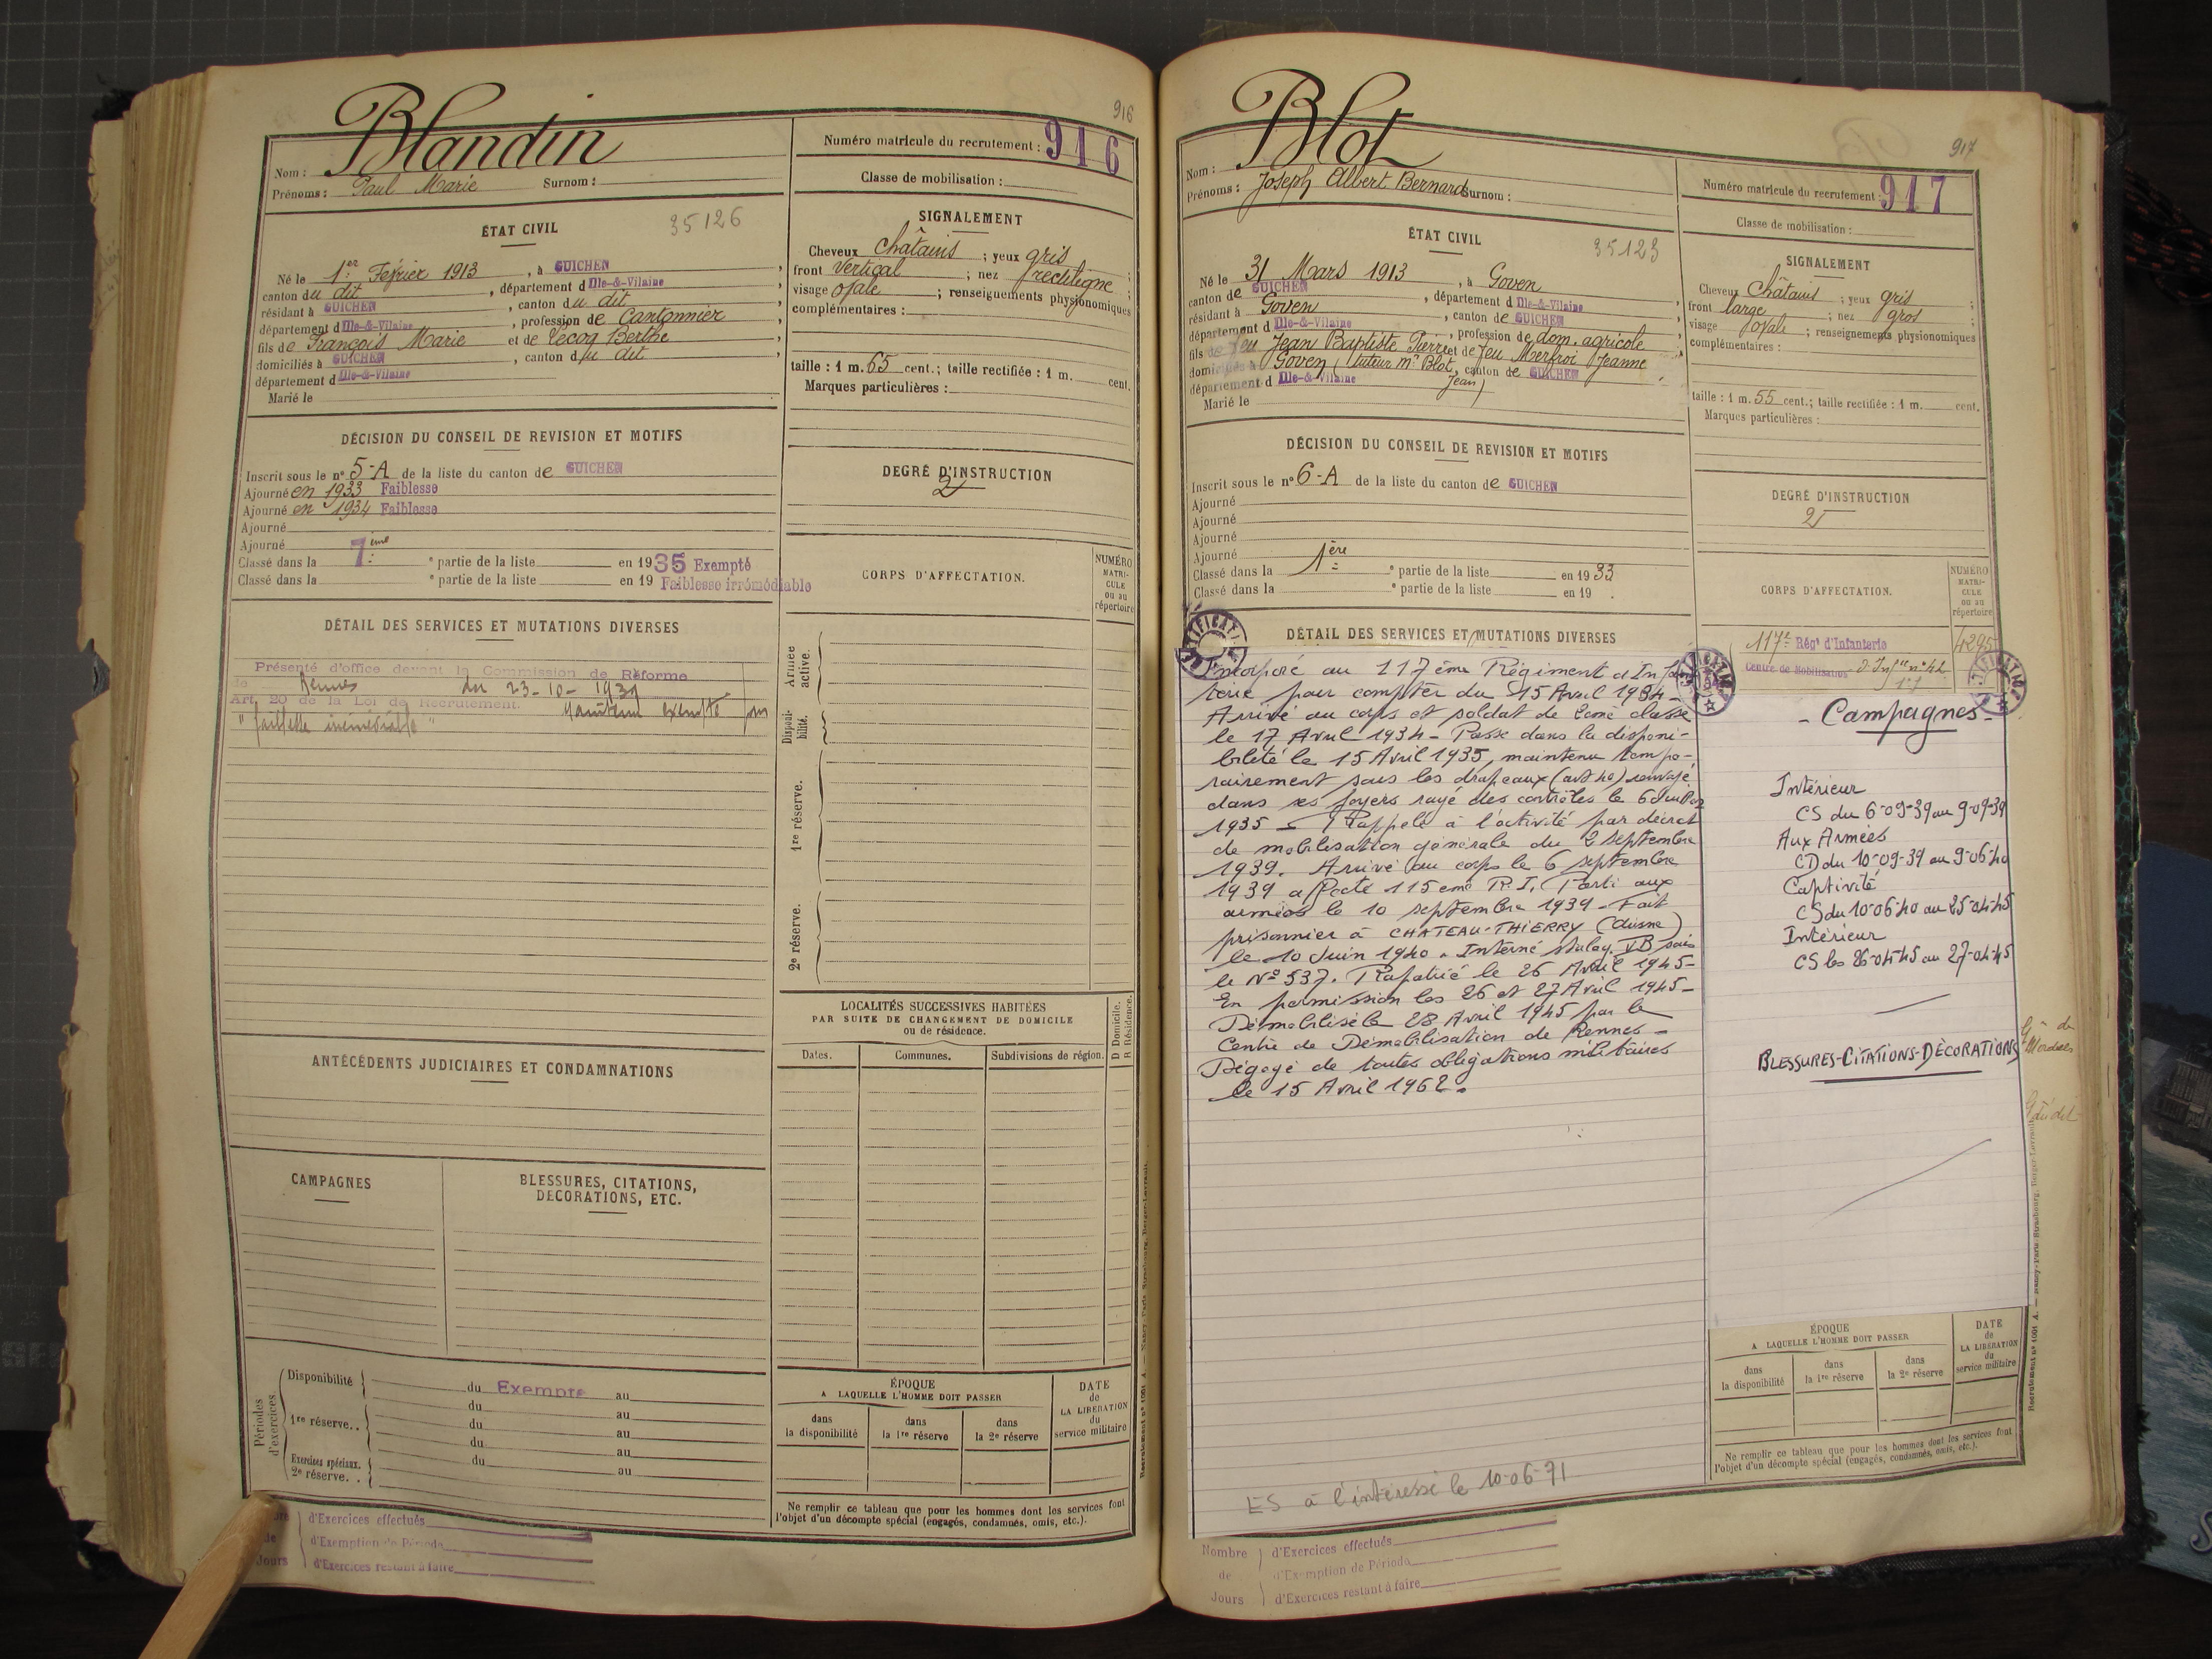 916
Nom : Blandin
Prénoms : Paul Marie Surnom :
Numéro matricule du recrutement : 916
Classe de mobilisation :
ÉTAT CIVIL
35126
Né le 1er Février 1913, à GUICHEN,
canton du dit, département d Ille-&-Vilaine
résidant à GUICHEN, canton du dit,
département d Ille-&-Vilaine, profession de Cantonnier,
fils de François Marie et de Lecoq Berthe,
domiciliés à GUICHEN, canton du dit,
département d Ille-&-Vilaine
Marié le
SIGNALEMENT
Cheveux châtains ; yeux gris ;
front vertical ; nez rectiligne ;
visage ovale ; renseignements physionomiques
complémentaires :
taille : 1 m. 65 cent.; taille rectifiée : 1 m. cent.
Marques particulières :
DÉCISION DU CONSEIL DE REVISION ET MOTIFS
Inscrit sous le n° 5-A de la liste du canton de GUICHEN
Ajourné en 1933 Faiblesse
Ajourné en 1934 Faiblesse
Ajourné
Ajourné
Classé dans la 7ème e partie de la liste en 1935 Exempté
Classé dans la e partie de la liste en 19 Faiblesse irrémédiable
DEGRÉ D'INSTRUCTION
2
CORPS D'AFFECTATION.
NUMÉRO
MATRI-
CULE
ou au
répertoire
DÉTAIL DES SERVICES ET MUTATIONS DIVERSES
Présenté d'office devant la Commission de Réforme
de Rennes du 23-10-1939
Art. 20 de la Loi de Recrutement. Maintenu exempté pour
"faiblesse irrémédiable"
Armée
active.
Disponi-
bilité.
1re réserve.
2e réserve.
LOCALITÉS SUCCESSIVES HABITÉES
PAR SUITE DE CHANGEMENT DE DOMICILE
ou de résidence.
D Domicile.
R Résidence.
Dates.
Communes.
Subdivisions de région.
ANTÉCÉDENTS JUDICIAIRES ET CONDAMNATIONS
CAMPAGNES
BLESSURES, CITATIONS,
DÉCORATIONS, ETC.
Périodes
d'exercices.
Disponibilité du Exempté au
du au
1re réserve.. du au
du au
Exercices spéciaux. du au
2e réserve. .
ÉPOQUE
A LAQUELLE L'HOMME DOIT PASSER
dans
la disponibilité
dans
la 1re réserve
dans
la 2e réserve
DATE
de
LA LIBÉRATION
du
service militaire
Ne remplir ce tableau que pour les hommes dont les services font
l'objet d'un décompte spécial (engagés, condamnés, omis, etc.).
d'Exercices effectués
de d'Exemption de Période
Jours d'Exercices restant à faire
917
Nom : Blot
Prénoms : Joseph Albert Bernard Surnom :
Numéro matricule du recrutement : 917
Classe de mobilisation :
ÉTAT CIVIL
35123
Né le 31 Mars 1913, à Goven
canton de GUICHEN, département d Ille-&-Vilaine
résidant à Goven, canton de GUICHEN,
département d Ille-&-Vilaine, profession de dom. agricole
fils de feu Jean Baptiste Pierre et de feu Merfroi Jeanne
domiciliés à Goven (tuteur Mr Blot, canton de GUICHEN
département d Ille-&-Vilaine Jean)
Marié le
SIGNALEMENT
Cheveux châtains ; yeux gris ;
front large ; nez gros ;
visage ovale ; renseignements physionomiques
complémentaires :
taille : 1 m. 55 cent.; taille rectifiée : 1 m. cent.
Marques particulières :
DÉCISION DU CONSEIL DE REVISION ET MOTIFS
Inscrit sous le n° 6-A de la liste du canton de GUICHEN
Ajourné
Ajourné
Ajourné
Ajourné
Classé dans la 1ère e partie de la liste en 1933
Classé dans la e partie de la liste en 19
DEGRÉ D'INSTRUCTION
2
CORPS D'AFFECTATION.
NUMÉRO
MATRI-
CULE
ou au
répertoire
117e Régt d'Infanterie 4295
Centre de Mobilisation d'Infie n° 42
DÉTAIL DES SERVICES ET MUTATIONS DIVERSES
Incorporé au 117ème Régiment d'Infan
terie pour compter du 15 Avril 1934-
Arrivé au corps et soldat de 2ème classe
le 17 Avril 1934 - Passé dans la disponi-
bilité le 15 Avril 1935, maintenu tempo-
rairement sous les drapeaux (art 40) renvoyé
dans ses foyers rayé des contrôles le 6 Juillet
1935 - Rappelé à l'activité par décret
de mobilisation générale du 2 septembre
1939. Arrivé au corps le 6 septembre
1939 affecté 115eme R.I. Parti aux
armées le 10 septembre 1939 - Fait
prisonnier à CHATEAU-THIERRY (Aisne)
le 10 Juin 1940. Interné stalag VB sous
le N° 537. Rapatrié le 26 Avril 1945-
En permission les 26 et 27 Avril 1945-
Démobilisé le 28 Avril 1945 par le
Centre de Démobilisation de Rennes -
Dégagé de toutes obligations militaires
le 15 Avril 1962.
- Campagnes -
Intérieur
CS du 6-09-39 au 9-09-39
Aux Armées
CD du 10-09-39 au 9-06-40
Captivité
CS du 10-06-40 au 25-04-45
Intérieur
CS les 26-04-45 au 27-04-45
BLESSURES-CITATIONS-DÉCORATIONS
ES à l'intéressé le 10-06-71
ÉPOQUE
A LAQUELLE L'HOMME DOIT PASSER
dans
la disponibilité
dans
la 1re réserve
dans
la 2e réserve
DATE
de
LA LIBÉRATION
du
service militaire
Ne remplir ce tableau que pour les hommes dont les services font
l'objet d'un décompte spécial (engagés, condamnés, omis, etc.).
Nombre d'Exercices effectués
de d'Exemption de Période
Jours d'Exercices restant à faire